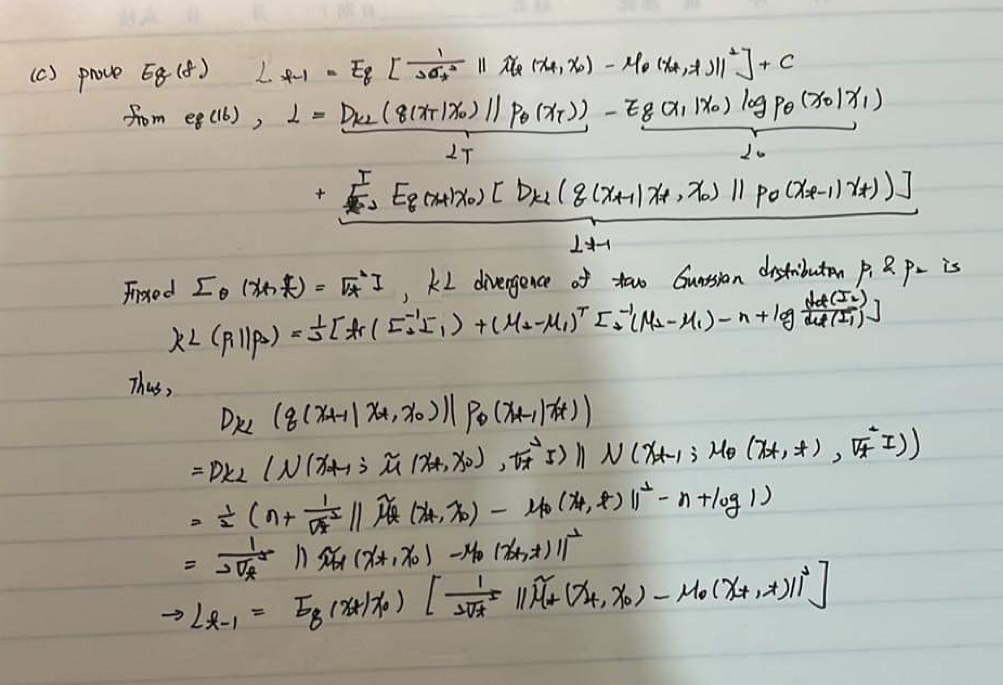 (c) prove Eq (8) L_{t-1} = E_q [ 1/(2σ_t²) || μ̃_t (x_t, x_0) - μ_θ (x_t, t) ||² ] + C
from eq (16), L = D_KL (q(x_T|x_0) || p_θ (x_T)) - E_q (x_1|x_0) log p_θ (x_0|x_1)
L_T L_0
+ Σ^T_{t=2} E_q (x_t|x_0) [ D_KL (q (x_{t-1}| x_t, x_0) || p_θ (x_{t-1}| x_t)) ]
L_{t-1}
Fixed Σ_θ (x_t, t) = σ_t² I, KL divergence of two Gaussian distribution p_1 & p_2 is
KL (p_1||p_2) = 1/2 [ tr ( Σ_2^{-1} Σ_1 ) + (μ_2 - μ_1)^T Σ_2^{-1} (μ_2 - μ_1) - n + log det(Σ_2)/det(Σ_1) ]
Thus,
D_KL (q (x_{t-1}| x_t, x_0) || p_θ (x_{t-1}| x_t))
= D_KL (N(x_{t-1}; μ̃ (x_t, x_0), σ_t² I) || N (x_{t-1}; μ_θ (x_t, t), σ_t² I))
= 1/2 (n + 1/σ_t² || μ̃_t (x_t, x_0) - μ_θ (x_t, t) ||² - n + log 1)
= 1/(2σ_t²) || μ̃_t (x_t, x_0) - μ_θ (x_t, t) ||²
→ L_{t-1} = E_q (x_t|x_0) [ 1/(2σ_t²) || μ̃_t (x_t, x_0) - μ_θ (x_t, t) ||² ]